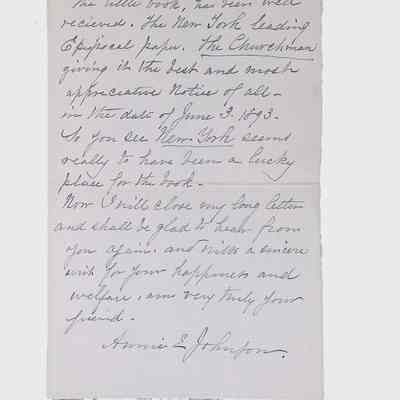 The little book, has been well
recieved. The New York leading
Episcocal paper. The Churchman
giving it the best and most
appreciative Notice of all -
in the date of June 3. 1893.
So you see New York seems
really to have been a lucky
place for the book -
Now I will close my long letter
and shall be glad to hear from
you again, and with a sincere
wish for your happiness and
welfare, am very truly your
friend -
Annie E Johnson.